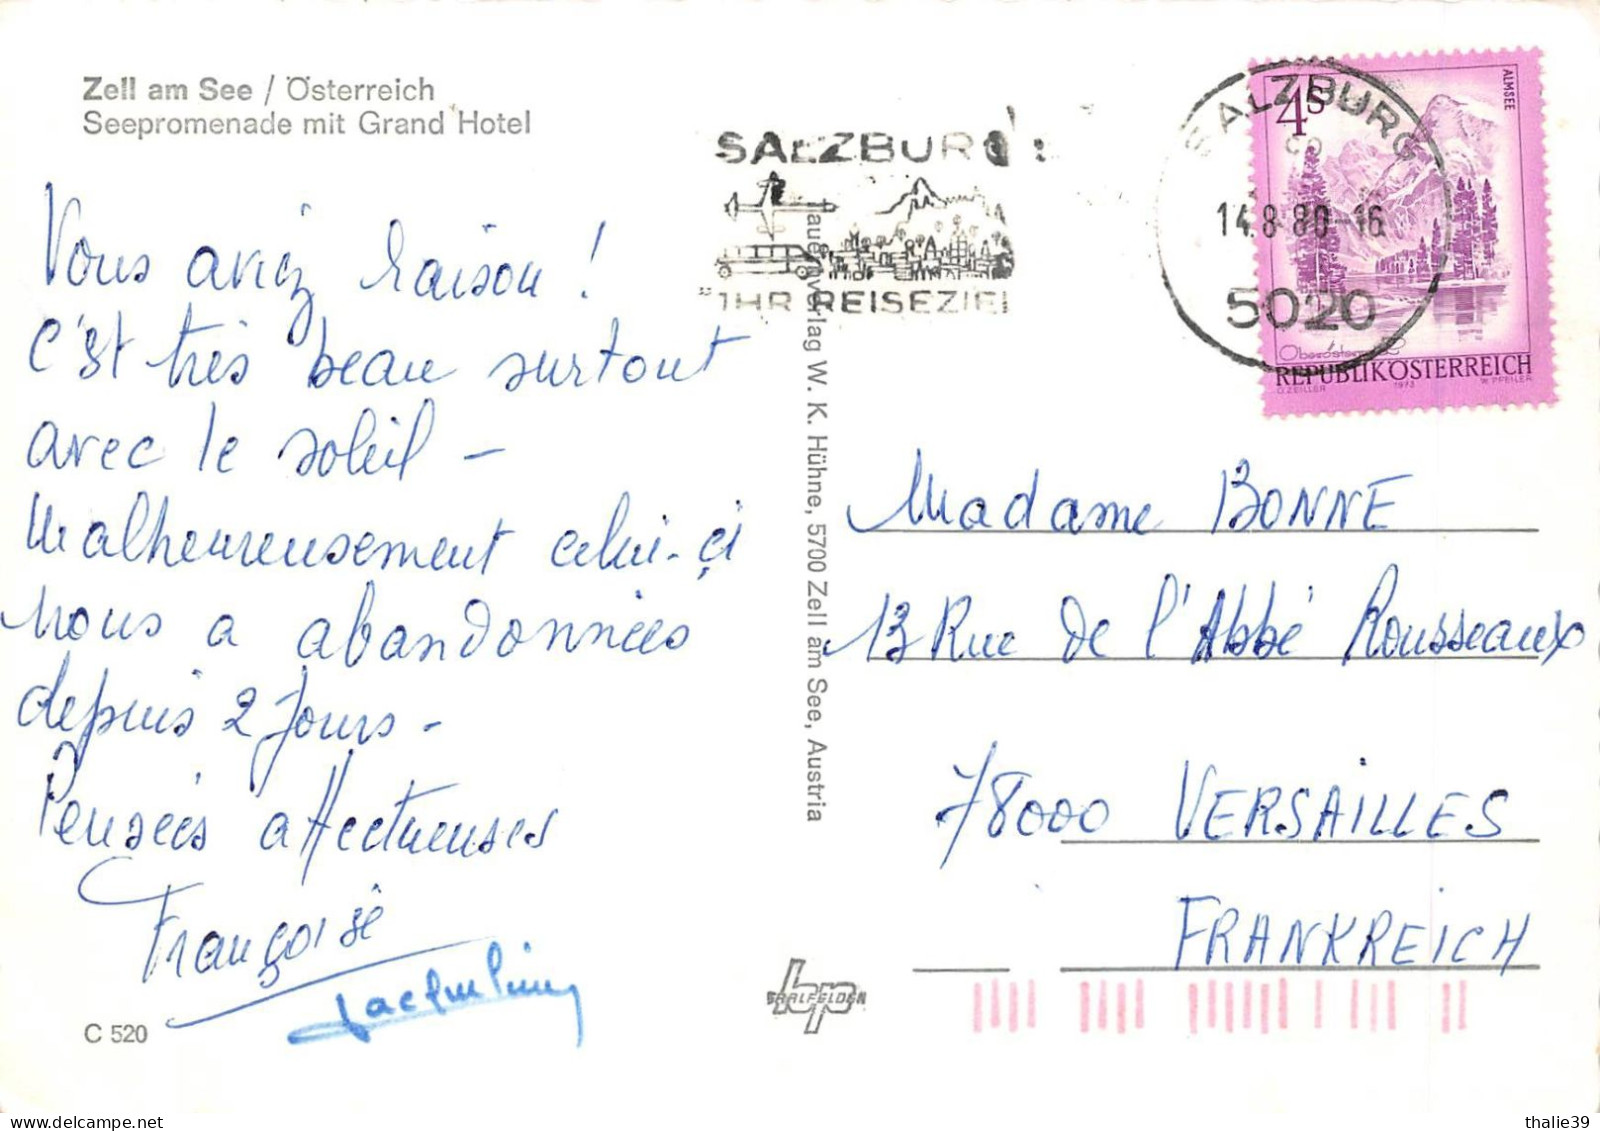 Zell am See / Österreich
Seepromenade mit Grand Hotel
Vous aviez raison !
C'est très beau surtout
avec le soleil -
Malheureusement celui-ci
nous a abandonnées
depuis 2 jours -
Pensées affectueuses
Françoise
Jacqueline
C 520
SALZBURG
"IHR REISEZIEL
Tauernverlag W. K. Hühne, 5700 Zell am See, Austria
SALZBURG
14.8.80-16
5020
4S
ALMSEE
Oberösterreich
REPUBLIK ÖSTERREICH
O. ZEILLER 1973 W. PFEILER
Madame BONNE
13 Rue de l'Abbé Rousseaux
78000 VERSAILLES
FRANKREICH
SAALFELDEN
thalie39